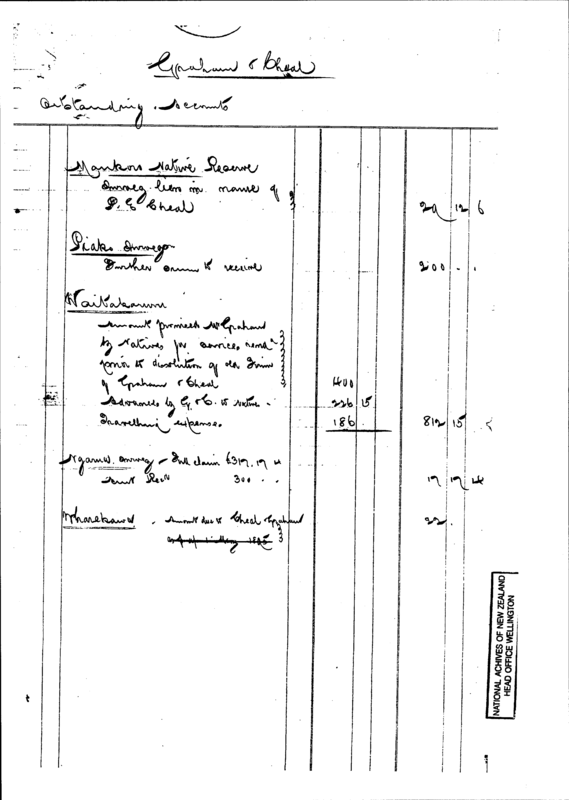 Graham & Cheal
Outstanding Accounts
Native Reserve
Survey lien in name of
P. E Cheal 29 12 6
Piako Survey
Further amount to receive 200 . .
Waitakaruru
Amount promised Mr Graham
by Natives for services rend
prior to dissolution of old Firm
of Graham & Cheal 400
Advances by G. & C. to Natives 226 15
Travelling expenses. 186 812 15
Survey - Full claim £317. 17 4
Amt Recd 300 . . 17 17 4
Wharekawa . Amount due to Cheal & Graham 22 .
1885
NATIONAL ACHIVES OF NEW ZEALAND
HEAD OFFICE WELLINGTON